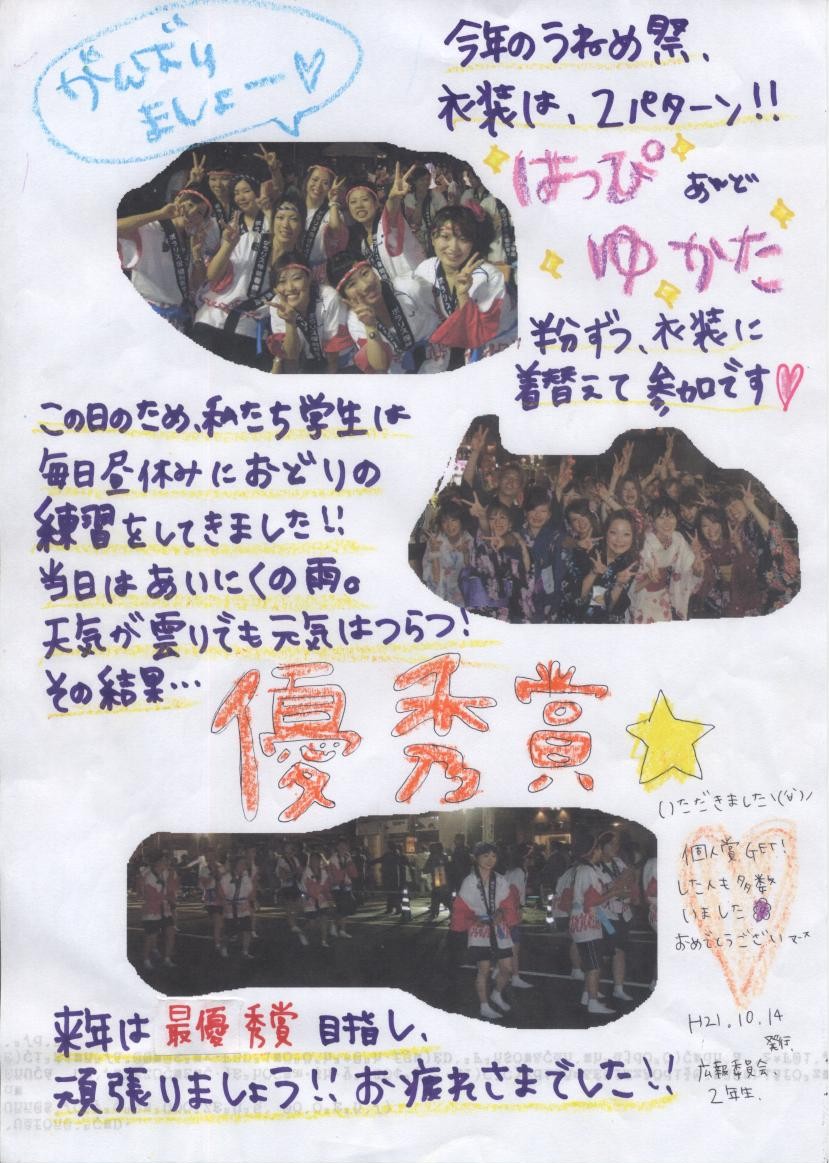 がんばり
ましょー♡
今年のうねめ祭、
衣装は、2パターン!!
はっぴ
あんど
ゆかた
半分ずつ、衣装に
着替えて参加です♡
この日のため、私たち学生は
毎日昼休みにおどりの
練習をしてきました!!
当日はあいにくの雨。
天気が曇りでも元気はつらつ!
その結果…
優秀賞
いただきました\(^v^)/
個人賞GET!
した人も多数
いました
おめでとうございマース
来年は最優秀賞目指し、
頑張りましょう!!お疲れさまでした!!
H21.10.14
発行
広報委員会
2年生.